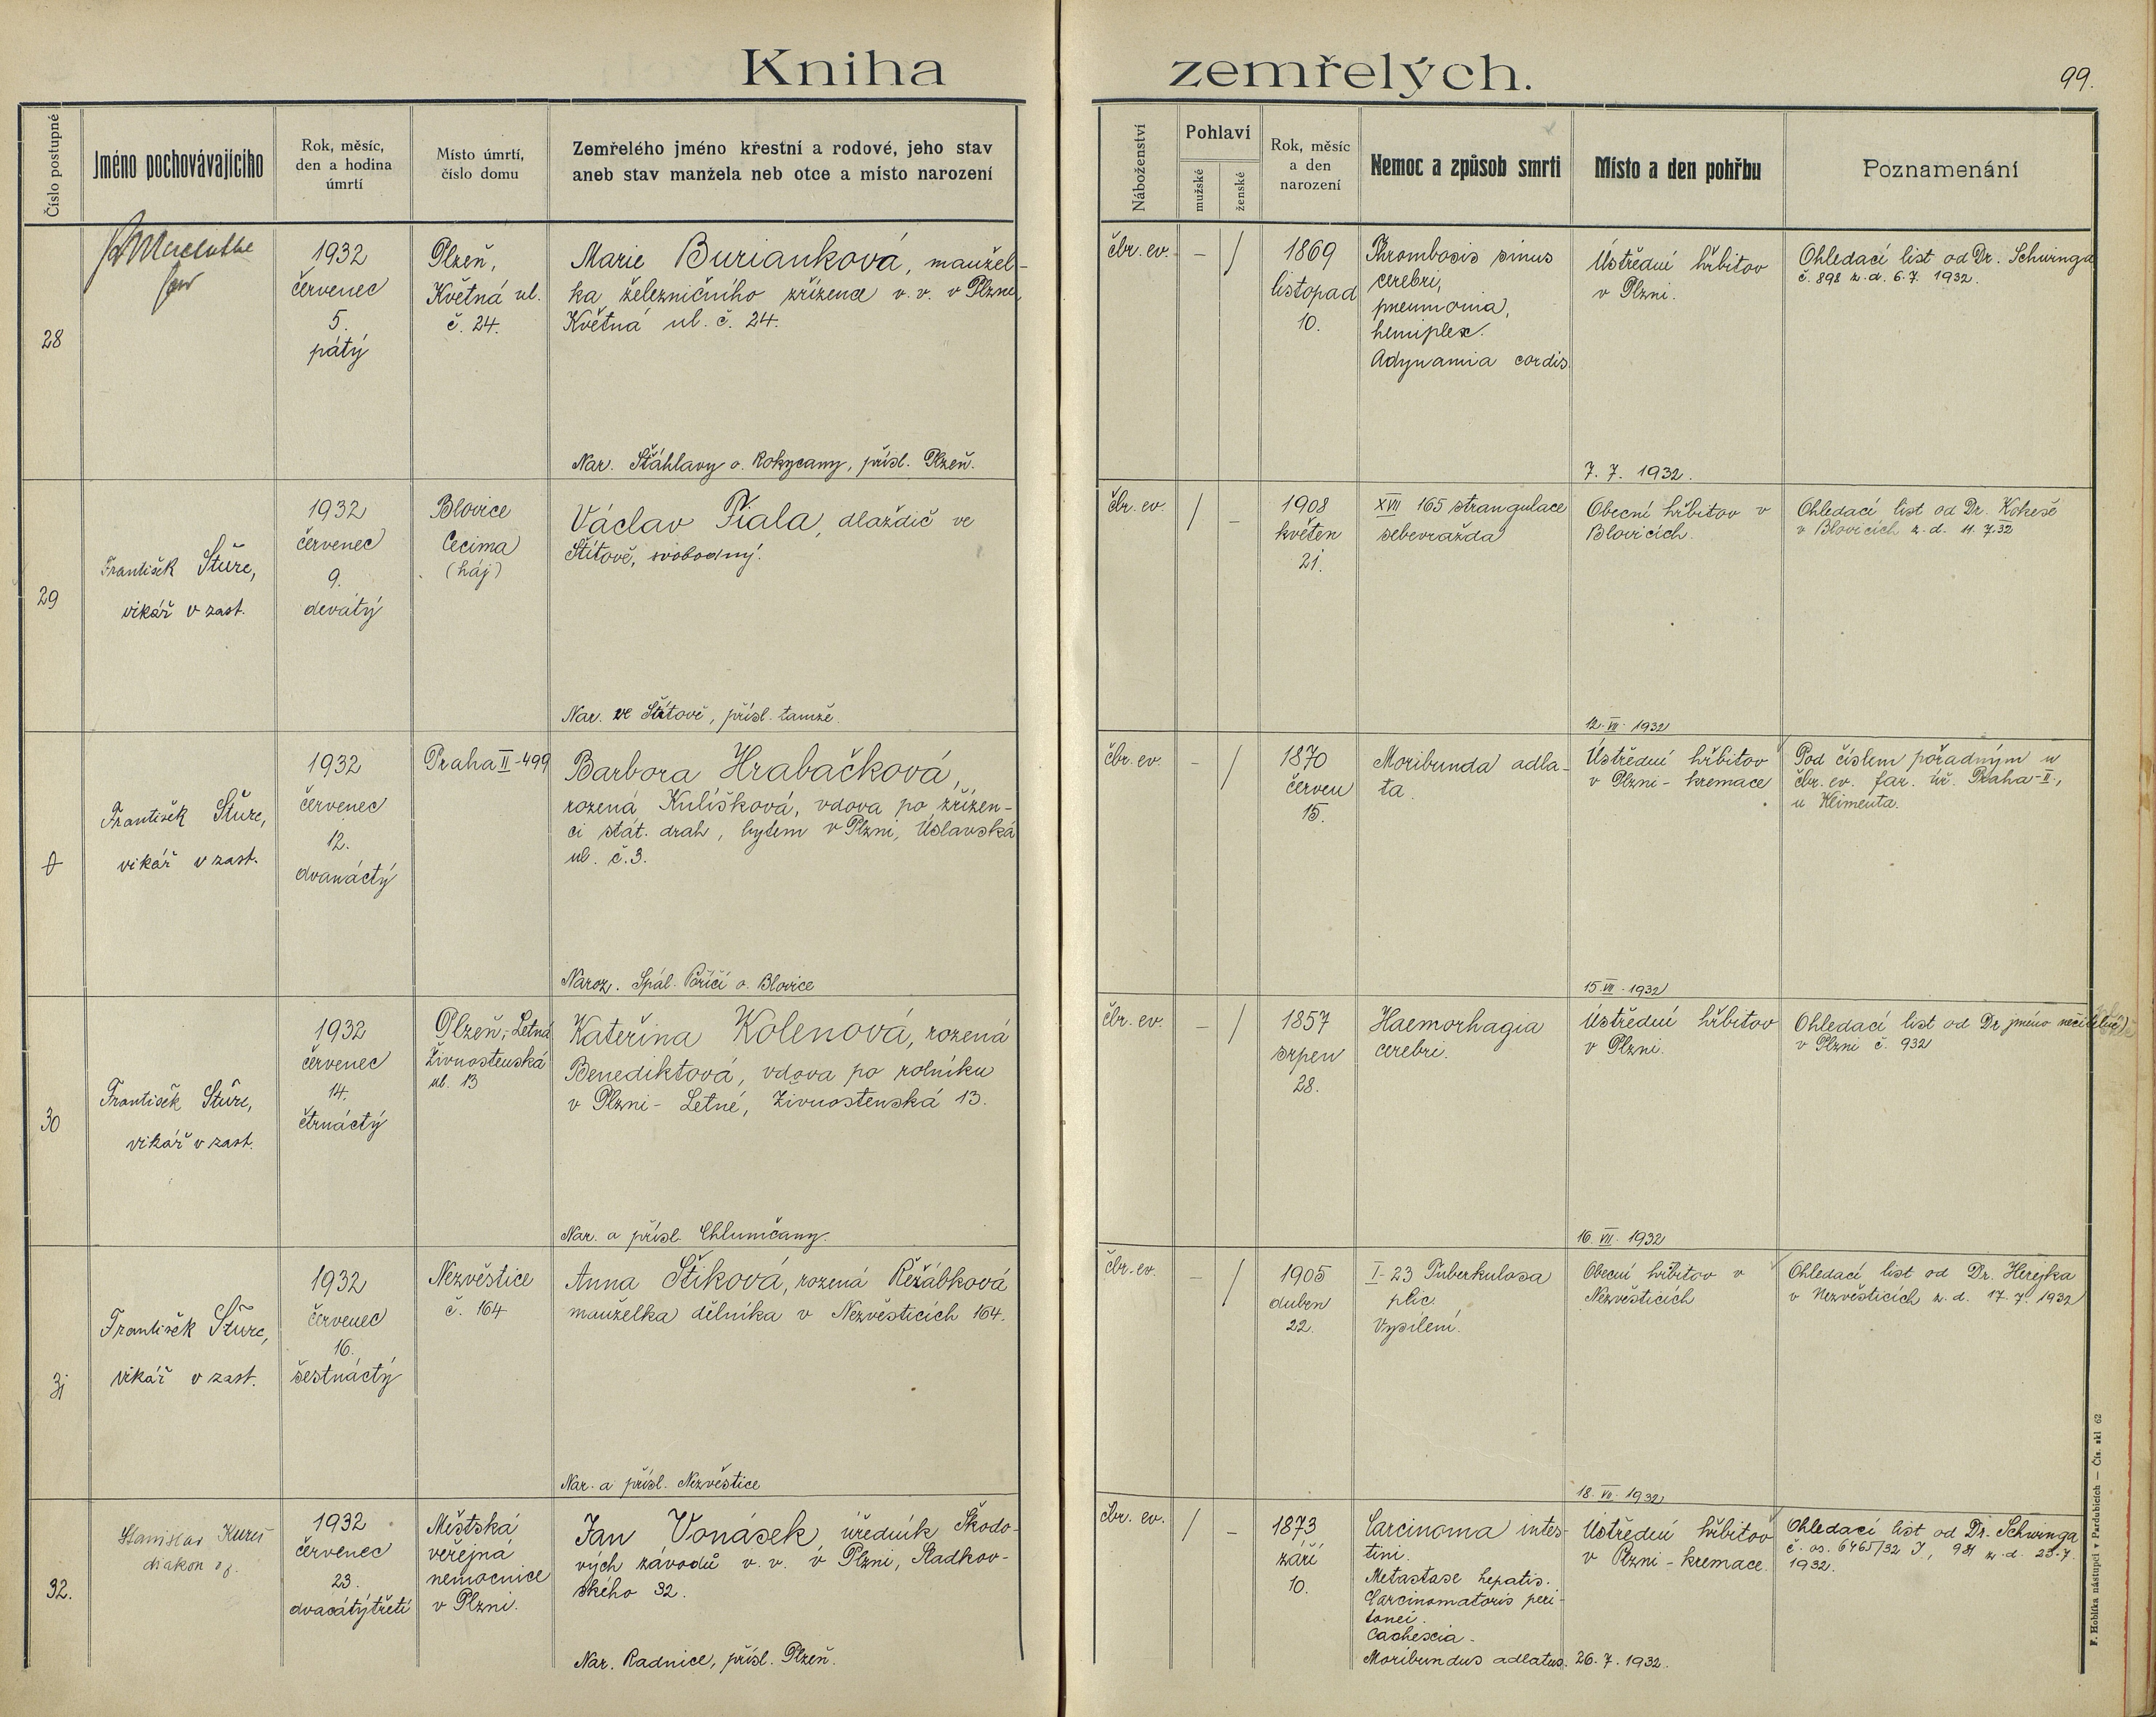 Kniha zemřelých.
99.
Číslo postupné
Jméno pochovávajícího
Rok, měsíc,
den a hodina
úmrtí
Místo úmrtí,
číslo domu
Zemřelého jméno křestní a rodové, jeho stav
aneb stav manžela neb otce a místo narození
Náboženství
Pohlaví
mužské
ženské
Rok, měsíc
a den
narození
Nemoc a způsob smrti
Místo a den pohřbu
Poznamenání
28
1932
červenec
5.
pátý
Plzeň,
Květná ul.
č. 24.
Marie Burianková, manžel-
ka železničního zřízence v. v. v Plzni,
Květná ul. č. 24.
Nar. Šťáhlavy o. Rokycany, přísl. Plzeň.
čbr. ev.
– /
1869
listopad
10.
Thrombosis sinus
cerebri,
pneumonia,
hemiplex.
Adynamia cordis.
Ústřední hřbitov
v Plzni.
7. 7. 1932.
Ohledací list od Dr. Schwinga
č. 898 z. d. 6. 7. 1932.
29
František Šturc,
vikář v zast.
1932
červenec
9.
devátý
Blovice
Cecima
(háj)
Václav Fiala, dlaždič ve
Štítově, svobodný.
Nar. ve Štítově, přísl. tamže.
čbr. ev.
/ –
1908
květen
21.
XVII 165 strangulace
sebevražda
Obecní hřbitov v
Blovicích.
12. VII. 1932
Ohledací list od Dr. Kokeše
v Blovicích z. d. 11. 7. 32
František Šturc,
vikář v zast.
1932
červenec
12.
dvanáctý
Praha II-499
Barbora Hrabačková,
rozená Kulišková, vdova po zřízen-
ci stát. drah, bytem v Plzni, Úslavská
ul. č. 3.
Naroz. Spál. Poříčí o. Blovice
čbr. ev.
– /
1870
červen
15.
Moribunda adla-
ta.
Ústřední hřbitov
v Plzni - kremace
15. VII. 1932
Pod číslem pořadným u
čbr. ev. far. úř. Praha-II.,
u Klimenta.
30
František Šturc,
vikář v zast.
1932
červenec
14.
čtrnáctý
Plzeň, Letná
Živnostenská
ul. 13
Kateřina Kolenová, rozená
Benediktová, vdova po rolníku
v Plzni - Letné, Živnostenská 13.
Nar. a přísl. Chlumčany.
čbr. ev.
– /
1857
srpen
28.
Haemorhagia
cerebri.
Ústřední hřbitov
v Plzni.
16. VII. 1932
Ohledací list od Dr. jméno nečitelné)
v Plzni č. 932
31
František Šturc,
vikář v zast.
1932
červenec
16.
šestnáctý
Nezvěstice
č. 164
Anna Štiková, rozená Řežábková
manželka dělníka v Nezvěsticích 164.
Nar. a přísl. Nezvěstice
čbr. ev.
– /
1905
duben
22.
I-23 Tuberkulosa
plic.
Vysílení.
Obecní hřbitov v
Nezvěsticích
18. VII. 1932
Ohledací list od Dr. Herejka
v Nezvěsticích z. d. 17. 7. 1932
32.
Stanislav Kureš
diakon
1932
červenec
23.
dvacátýtřetí
Městská
veřejná
nemocnice
v Plzni.
Jan Vonásek úředník Škodo-
vých závodů v. v. v Plzni, Sladkov-
ského 32.
Nar. Radnice, přísl. Plzeň.
čbr. ev.
/ –
1873
září
10.
Carcinoma intes-
tini.
Metastase hepatis.
Carcinomatoris peri-
tonei.
Cachexia.
Moribundus adlatus.
Ústřední hřbitov
v Plzni - kremace.
26. 7. 1932.
Ohledací list od Dr. Schwinga
č. os. 6465/32 I, 981 z. d. 25. 7.
1932.
F. Hoblíka nástupci v Pardubicích — Čís. skl 62